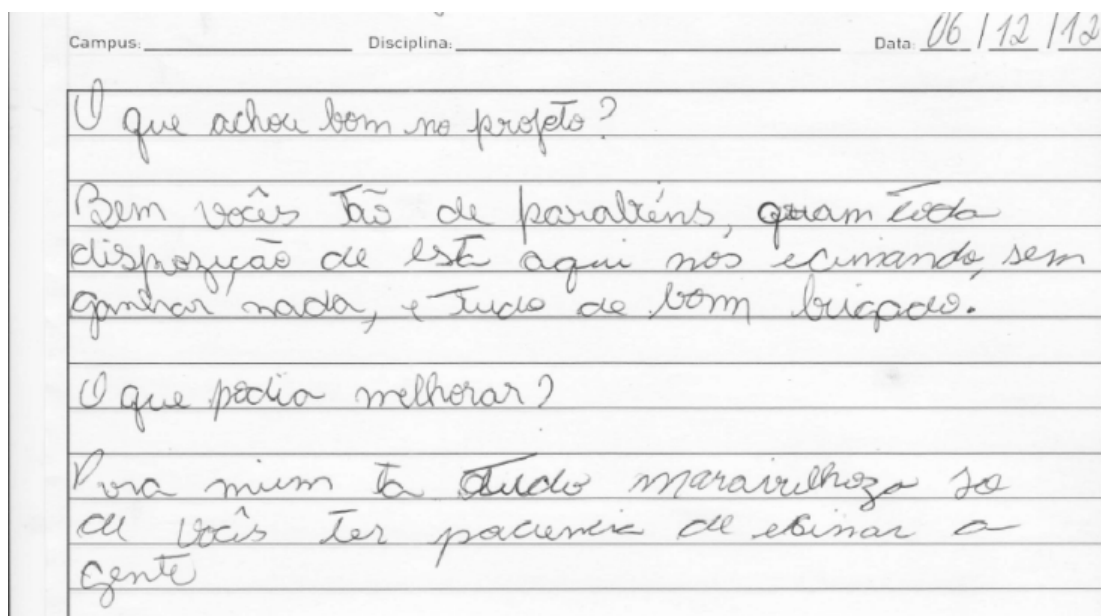 Campus: Disciplina: Data: 06/12/12
O que achou bom no projeto?
Bem vocês tão de parabéns, toda
disposição de está aqui nos ecinando, sem
ganhar nada, e tudo de bom brigado.
O que podia melhorar?
Para mium ta tudo maravilhozo so
de vocês ter paciencia de ecinar a
gente